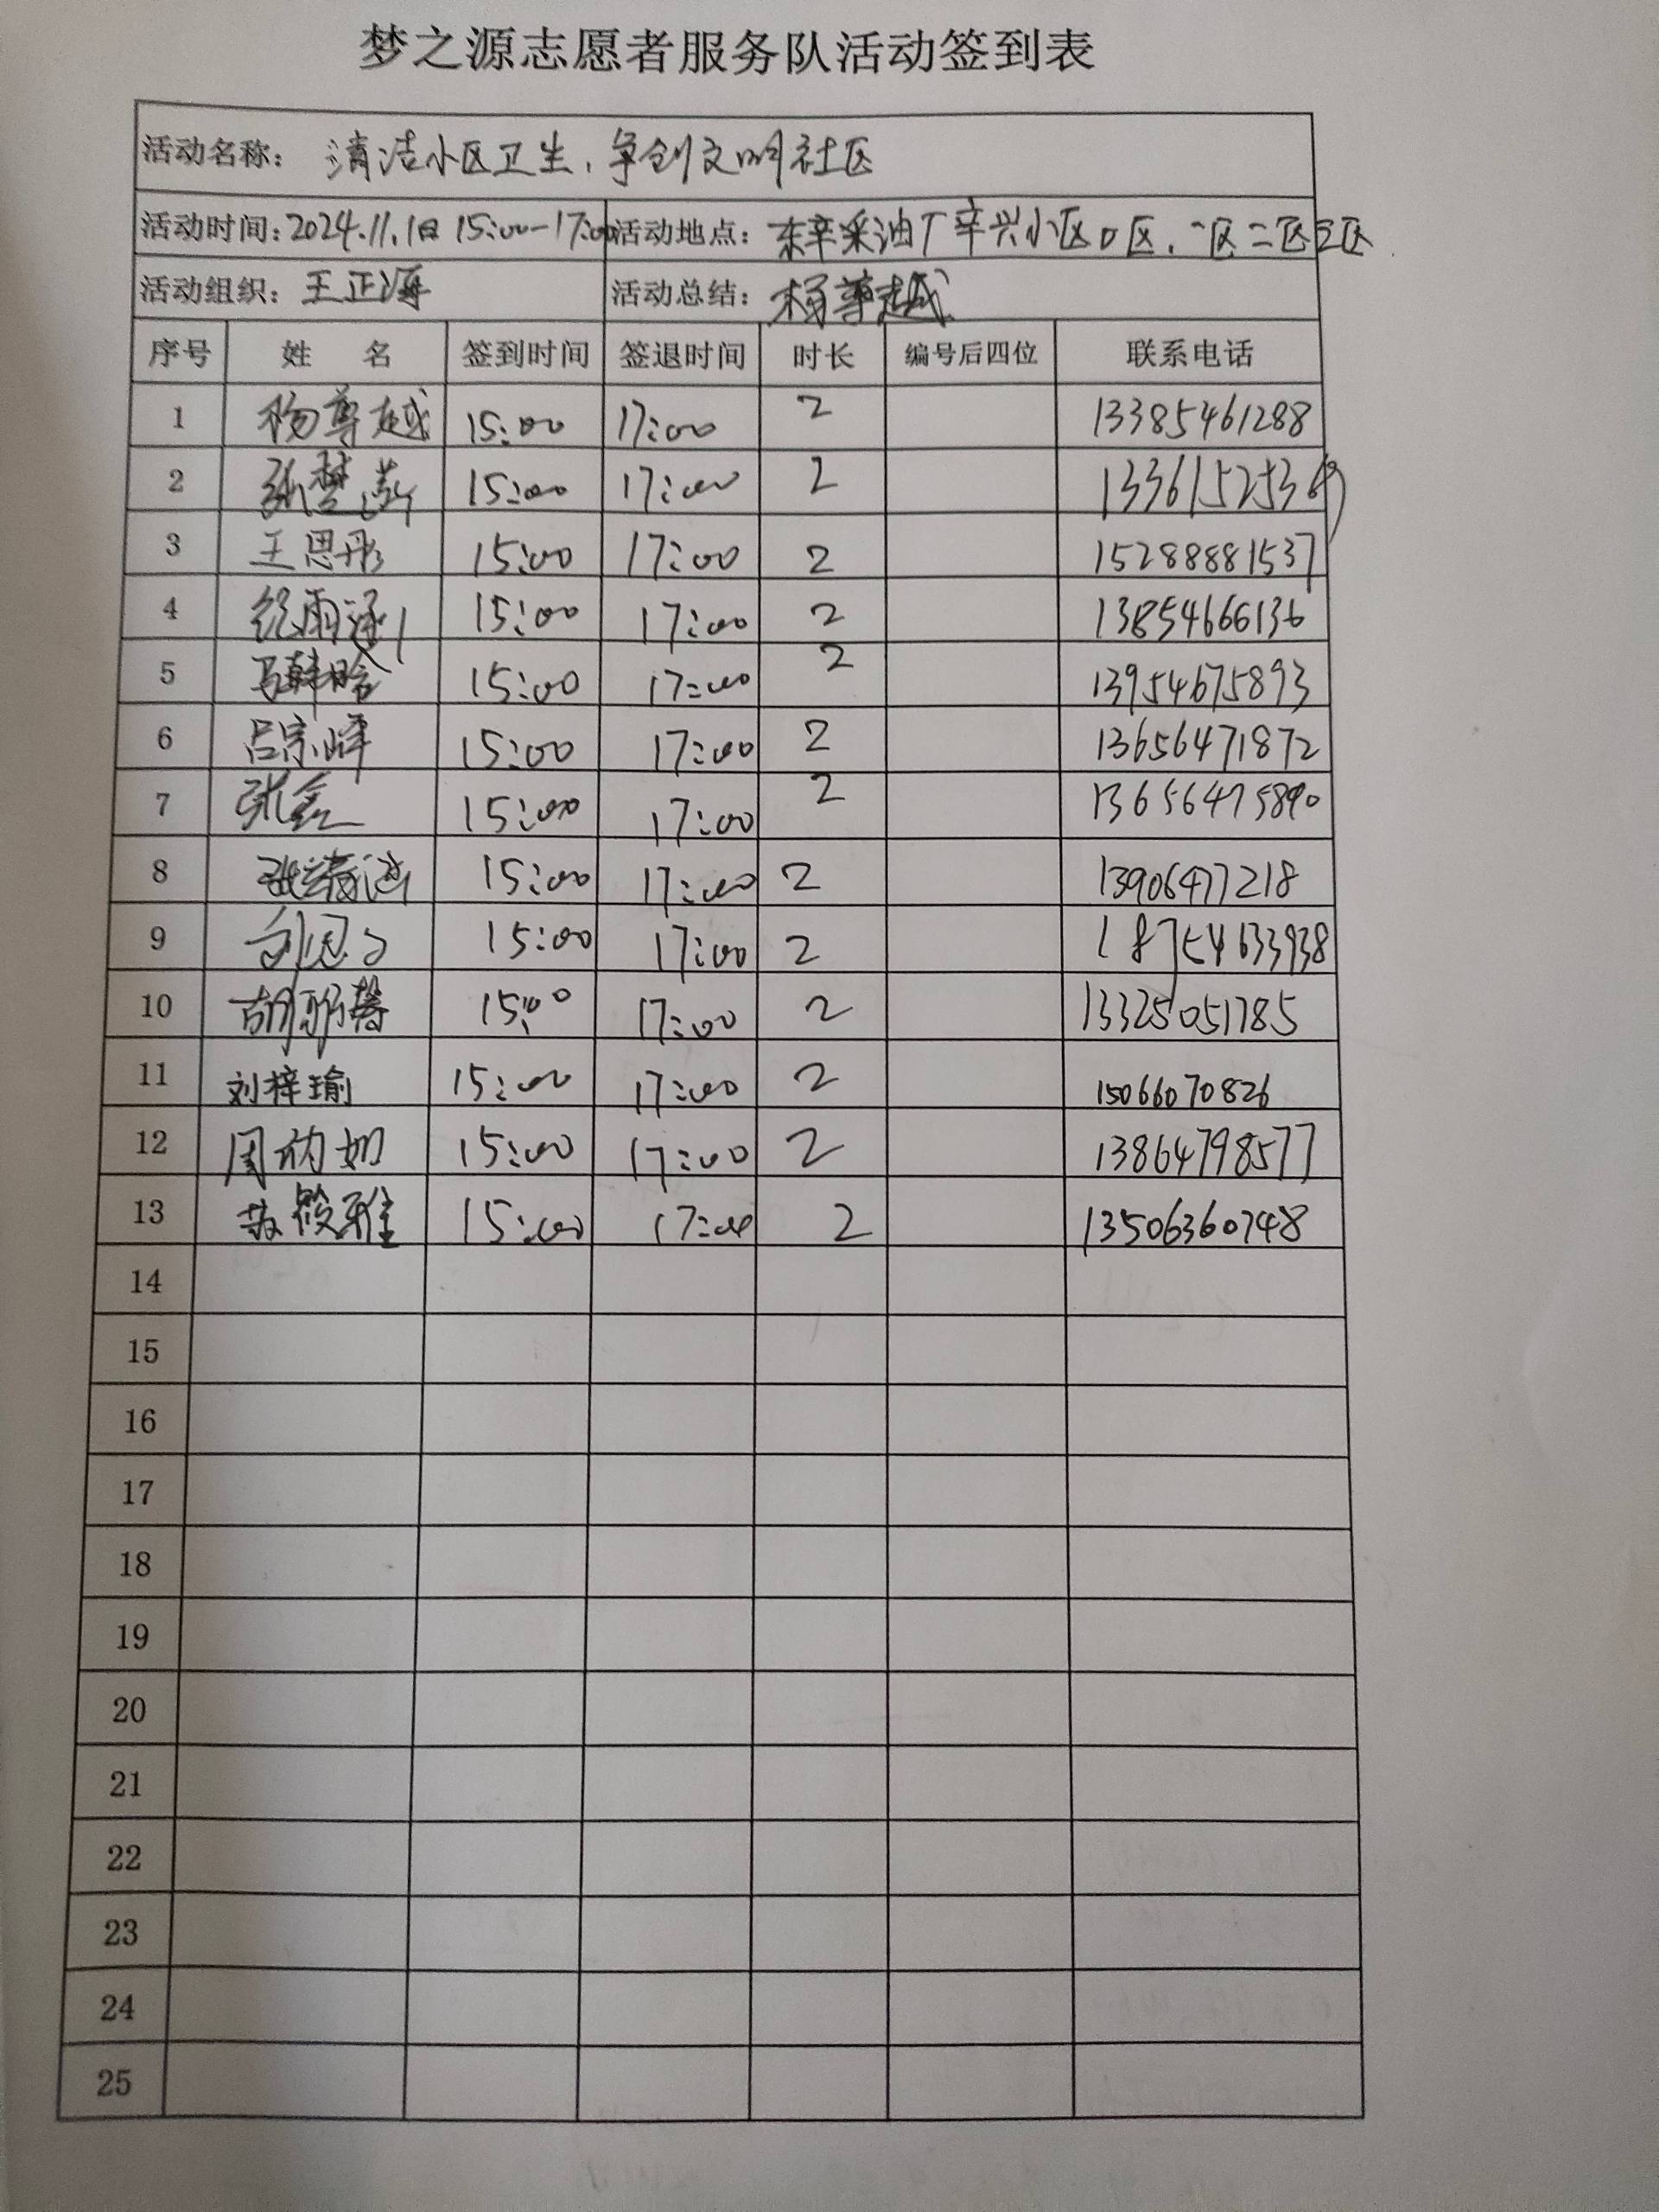 梦之源志愿者服务队活动签到表
活动名称： 清洁小区卫生，争创文明社区
活动时间：2024.11.1日 15:00-17:00 活动地点：东辛采油厂辛兴小区口区，一区二区三区
活动组织：王正海 活动总结：杨尊越
序号 姓 名 签到时间 签退时间 时长 编号后四位 联系电话
1 杨尊越 15:00 17:00 2 13385461288
2 张梦 15:00 17:00 2
3 王思彤 15:00 17:00 2 15288881537
4 雨涵 15:00 17:00 2 13854666136
5 马韩晗 15:00 17:00 2 13954675893
6 吕宗峰 15:00 17:00 2 13656471872
7 张鑫 15:00 17:00 2 13656475890
8 张 15:00 17:00 2 13906477218
9 刘 15:00 17:00 2 18754633938
10 胡 馨 15:00 17:00 2 13325051785
11 刘梓瑜 15:00 17:00 2 15066070826
12 周 如 15:00 17:00 2 13864798577
13 苏筱雅 15:00 17:00 2 13506360748
14
15
16
17
18
19
20
21
22
23
24
25